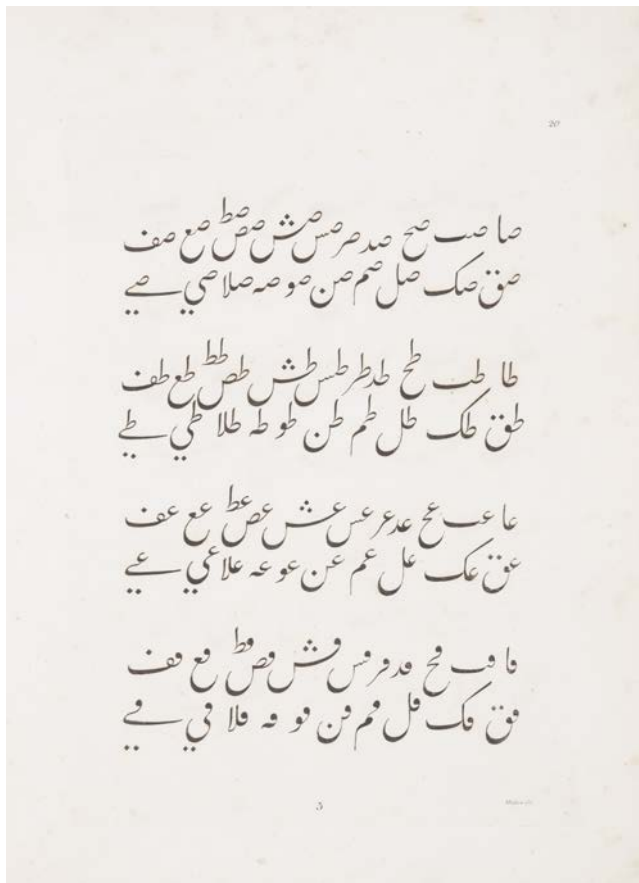 20
صا صب صح صد صر صس صش صص صط صع صف
صق صک صل صم صن صو صه صلا صي صے
طا طب طح طد طر طس طش طص طط طع طف
طق طک طل طم طن طو طه طلا طي طے
عا عب عح عد عر عس عش عص عط عع عف
عق عک عل عم عن عو عه علا عي عے
فا فب فح فد فر فس فش فص فط فع فف
فق فک فل فم فن فو فه فلا في فے
5